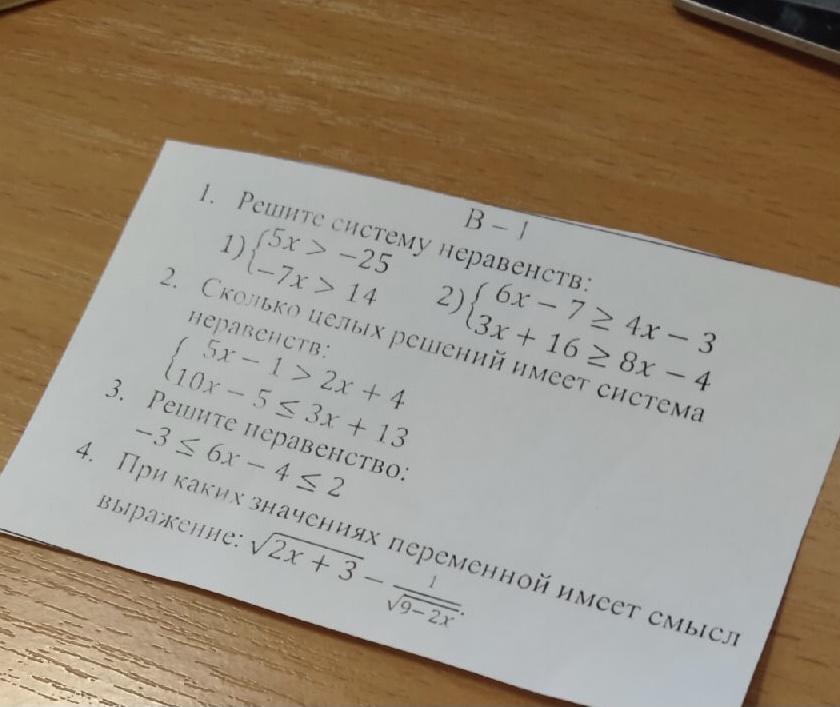 В – 1
1. Решите систему неравенств:
1) {5x > −25
−7x > 14
2) {6x − 7 ≥ 4x − 3
3x + 16 ≥ 8x − 4
2. Сколько целых решений имеет система
неравенств:
{5x − 1 > 2x + 4
10x − 5 ≤ 3x + 13
3. Решите неравенство:
−3 ≤ 6x − 4 ≤ 2
4. При каких значениях переменной имеет смысл
выражение: √(2x + 3) − 1/√(9−2x).